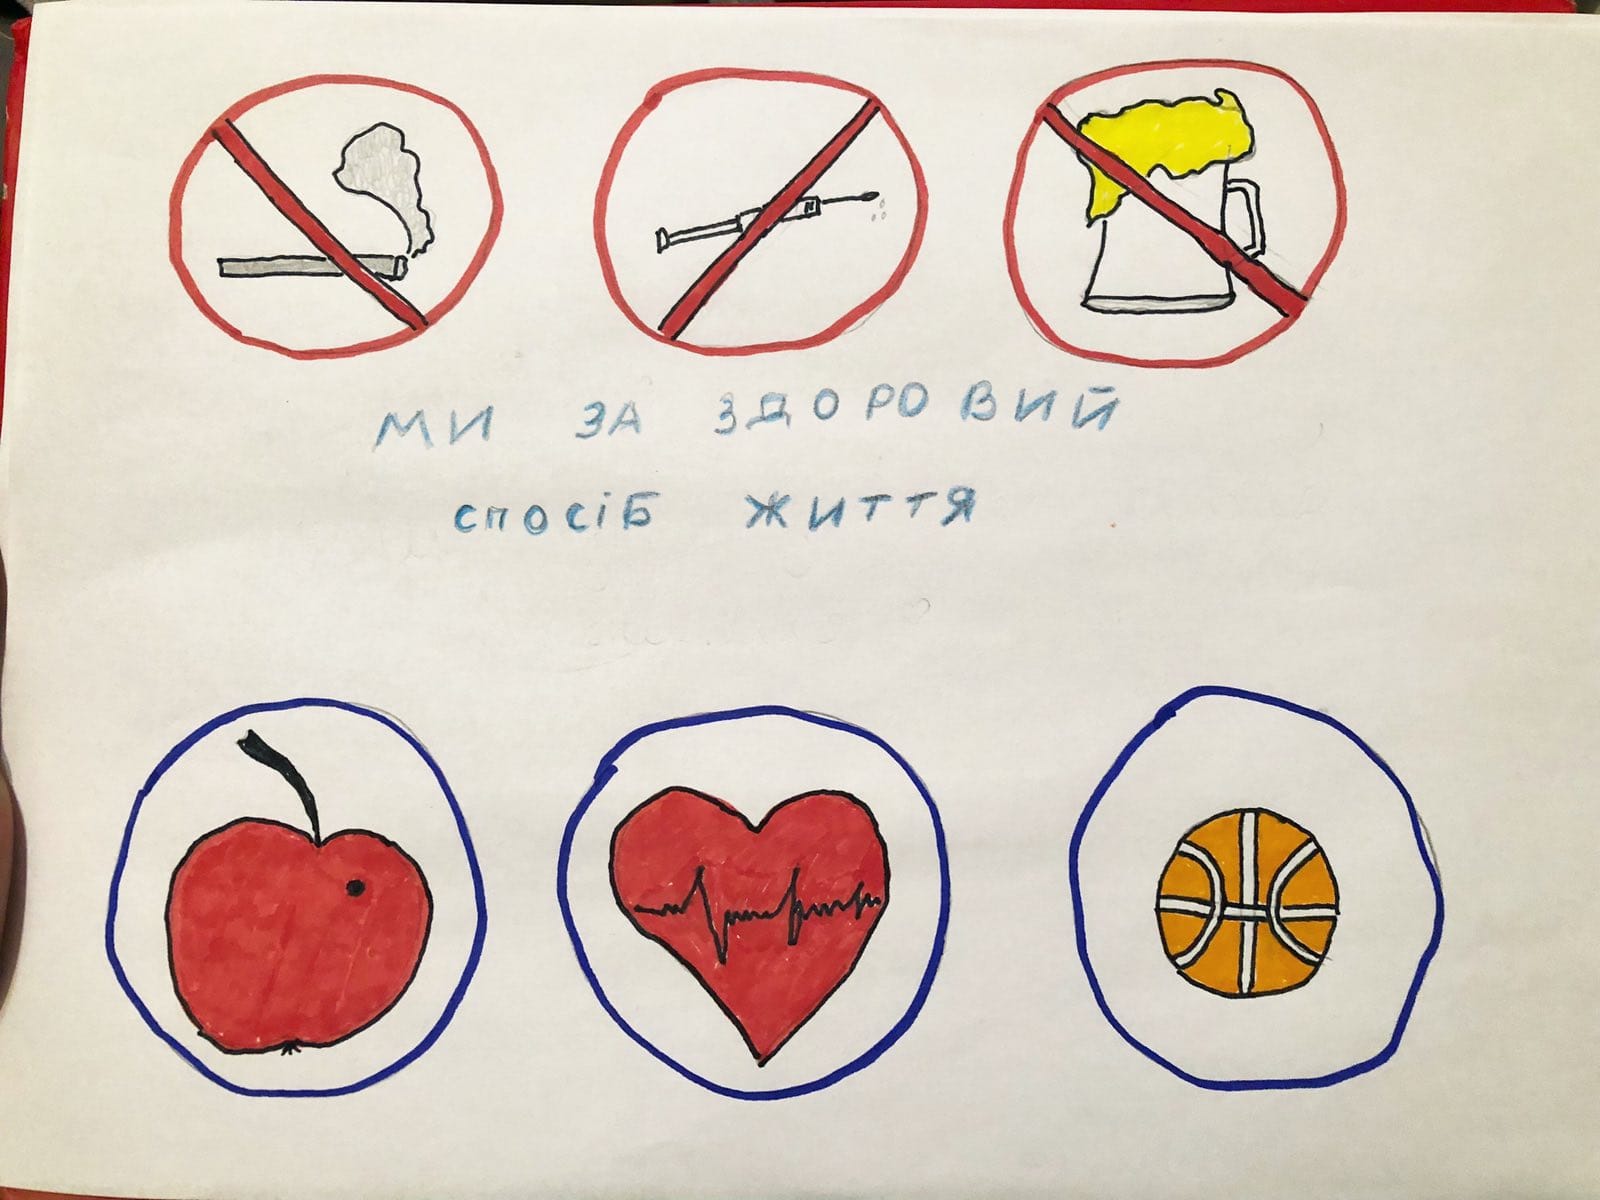 МИ ЗА ЗДОРОВИЙ
СПОСІБ ЖИТТЯ